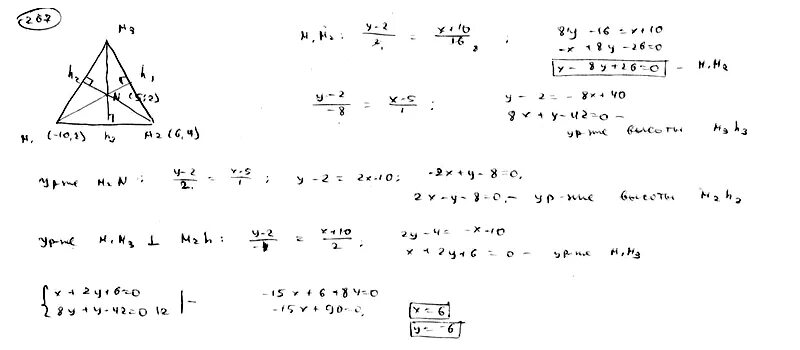 267
M3
h2 h1
N (5;2)
M1 (-10,2) h3 M2 (6,4)
M1M2: y-2/2 = x+10/16 8 ; 8y -16 = x+10
-x + 8y -26=0
x - 8y+26=0 - M1M2
y-2/-8 = x-5/1 ; y - 2 = - 8x+40
8x + y - 42=0 -
ур-ие высоты M3h3
Ур-ие M2N: y-2/2 = x-5/1 ; y-2 = 2x-10; -2x+y-8=0,
2x-y-8=0, - ур-ние высоты M2h2
Ур-ие M1M3 ⊥ M2h: y-2/-1 = x+10/2 ; 2y-4= -x-10
x + 2y+6 = 0 - ур-ие M1M3
{ x + 2y+6=0
8y+y-42=0 |2 | - -15x+6+84=0
-15x+90=0, x=6
y=-6